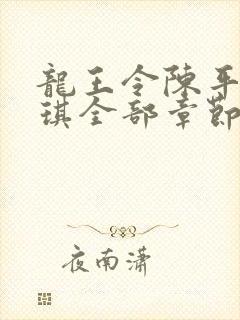 龍王令陳平
琪全部章節
夜南瀟